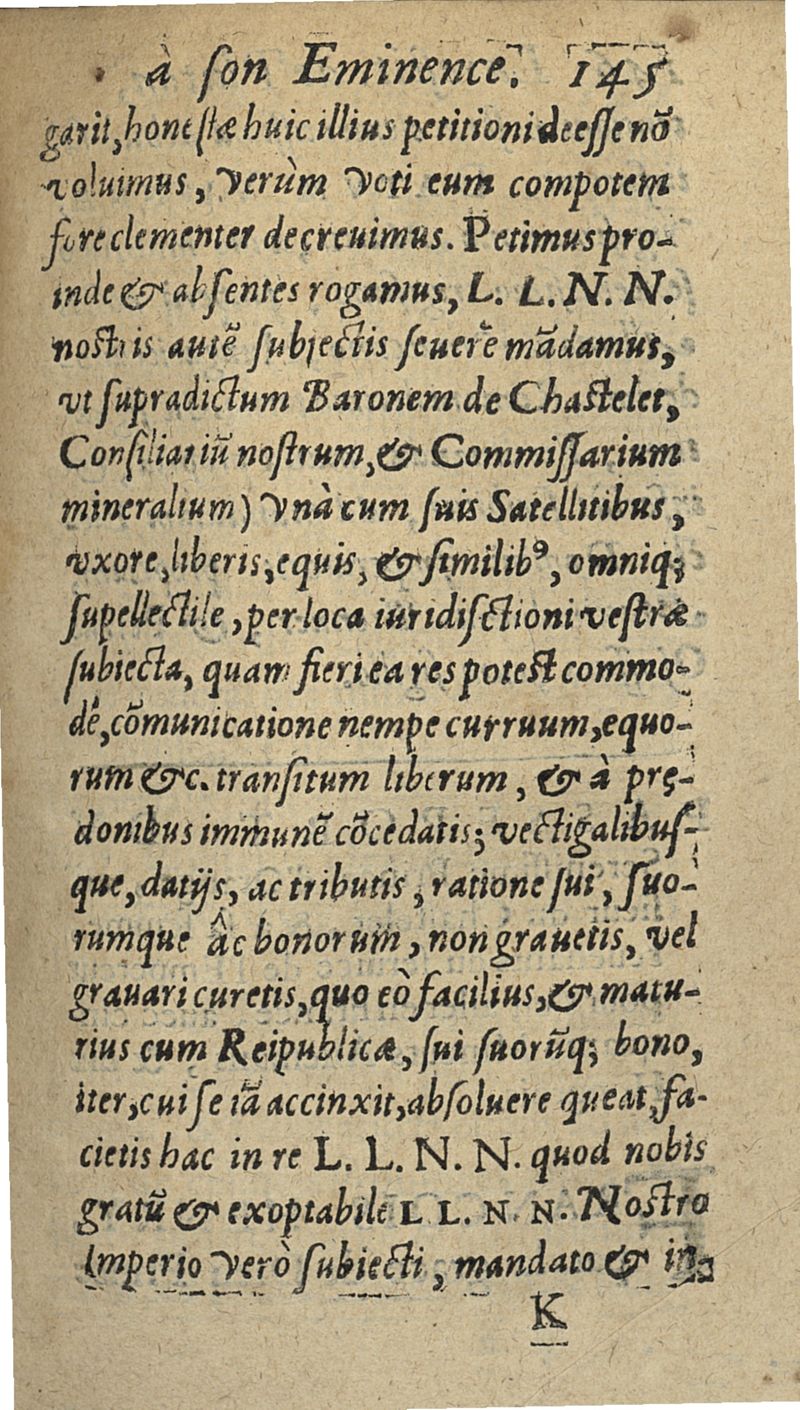 à ſon Eminence. 145
garit, honeſtæ huic illius petitioni deeſſe nõ
voluimus, verùm voti eum compotem
fore clementer decreuimus. Petimus pro-
inde & abſentes rogamus, L. L. N. N.
noſtris autẽ ſubjectis ſeuerè mãdamus,
vt ſupradictum Baronem de Chaſtelet,
Conſiliariũ noſtrum, & Commiſſarium
mineralium) vnà cum ſuis Satellitibus,
vxore, liberis, equis, & ſimilibꝰ, omniq;
ſupellectile, per loca iuridiſctioni veſtræ
ſubiecta, quam fieri ea res poteſt commo-
dè, cõmunicatione nempe curruum, equo-
rum &c. tranſitum liberum, & à prę-
donibus immunẽ cõcedatis; vectigalibuſ-
que, datijs, ac tributis, ratione ſui, ſuo-
rumque âc bonorum, non grauetis, vel
grauari curetis, quo eò facilius, & matu-
rius cum Reipublicæ, ſui ſuorũq; bono,
iter, cui ſe iã accinxit, abſoluere queat, fa-
cietis hac in re L. L. N. N. quod nobis
gratũ & exoptabile L L. N. N. Noſtro
Imperio verò ſubiecti, mandato & in-
K